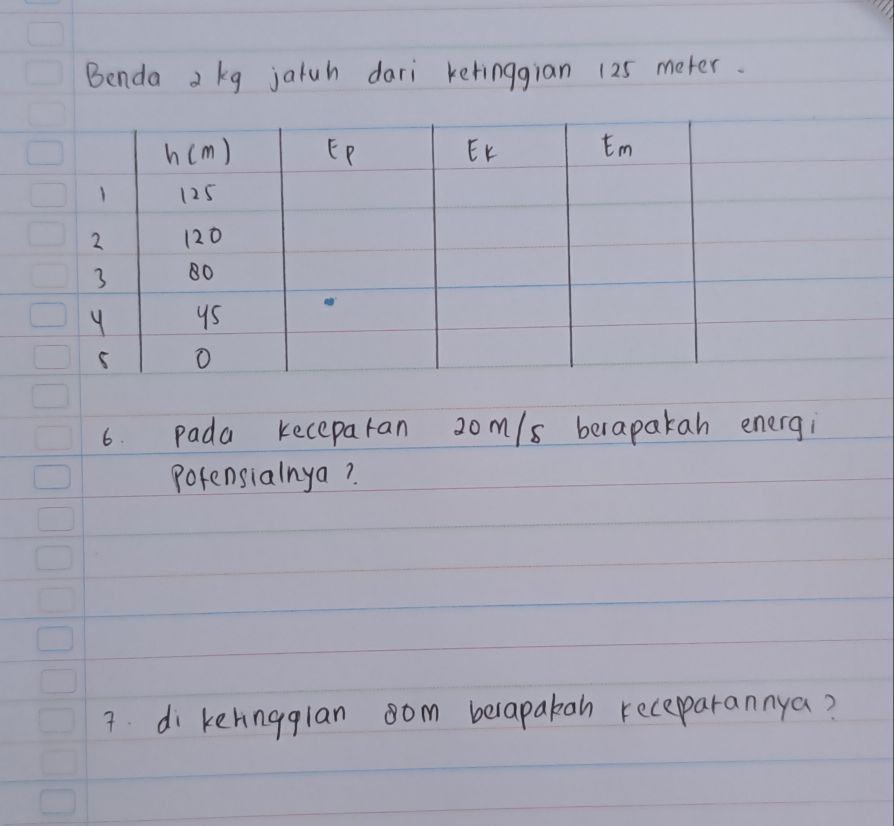 Benda 2 kg jatuh dari ketinggian 125 meter.
h(m) Ep Ek Em
1 125
2 120
3 80
4 45
5 0
6. Pada kecepatan 20 m/s berapakah energi
Potensialnya?
7. di ketinggian 80m berapakah kecepatannya?